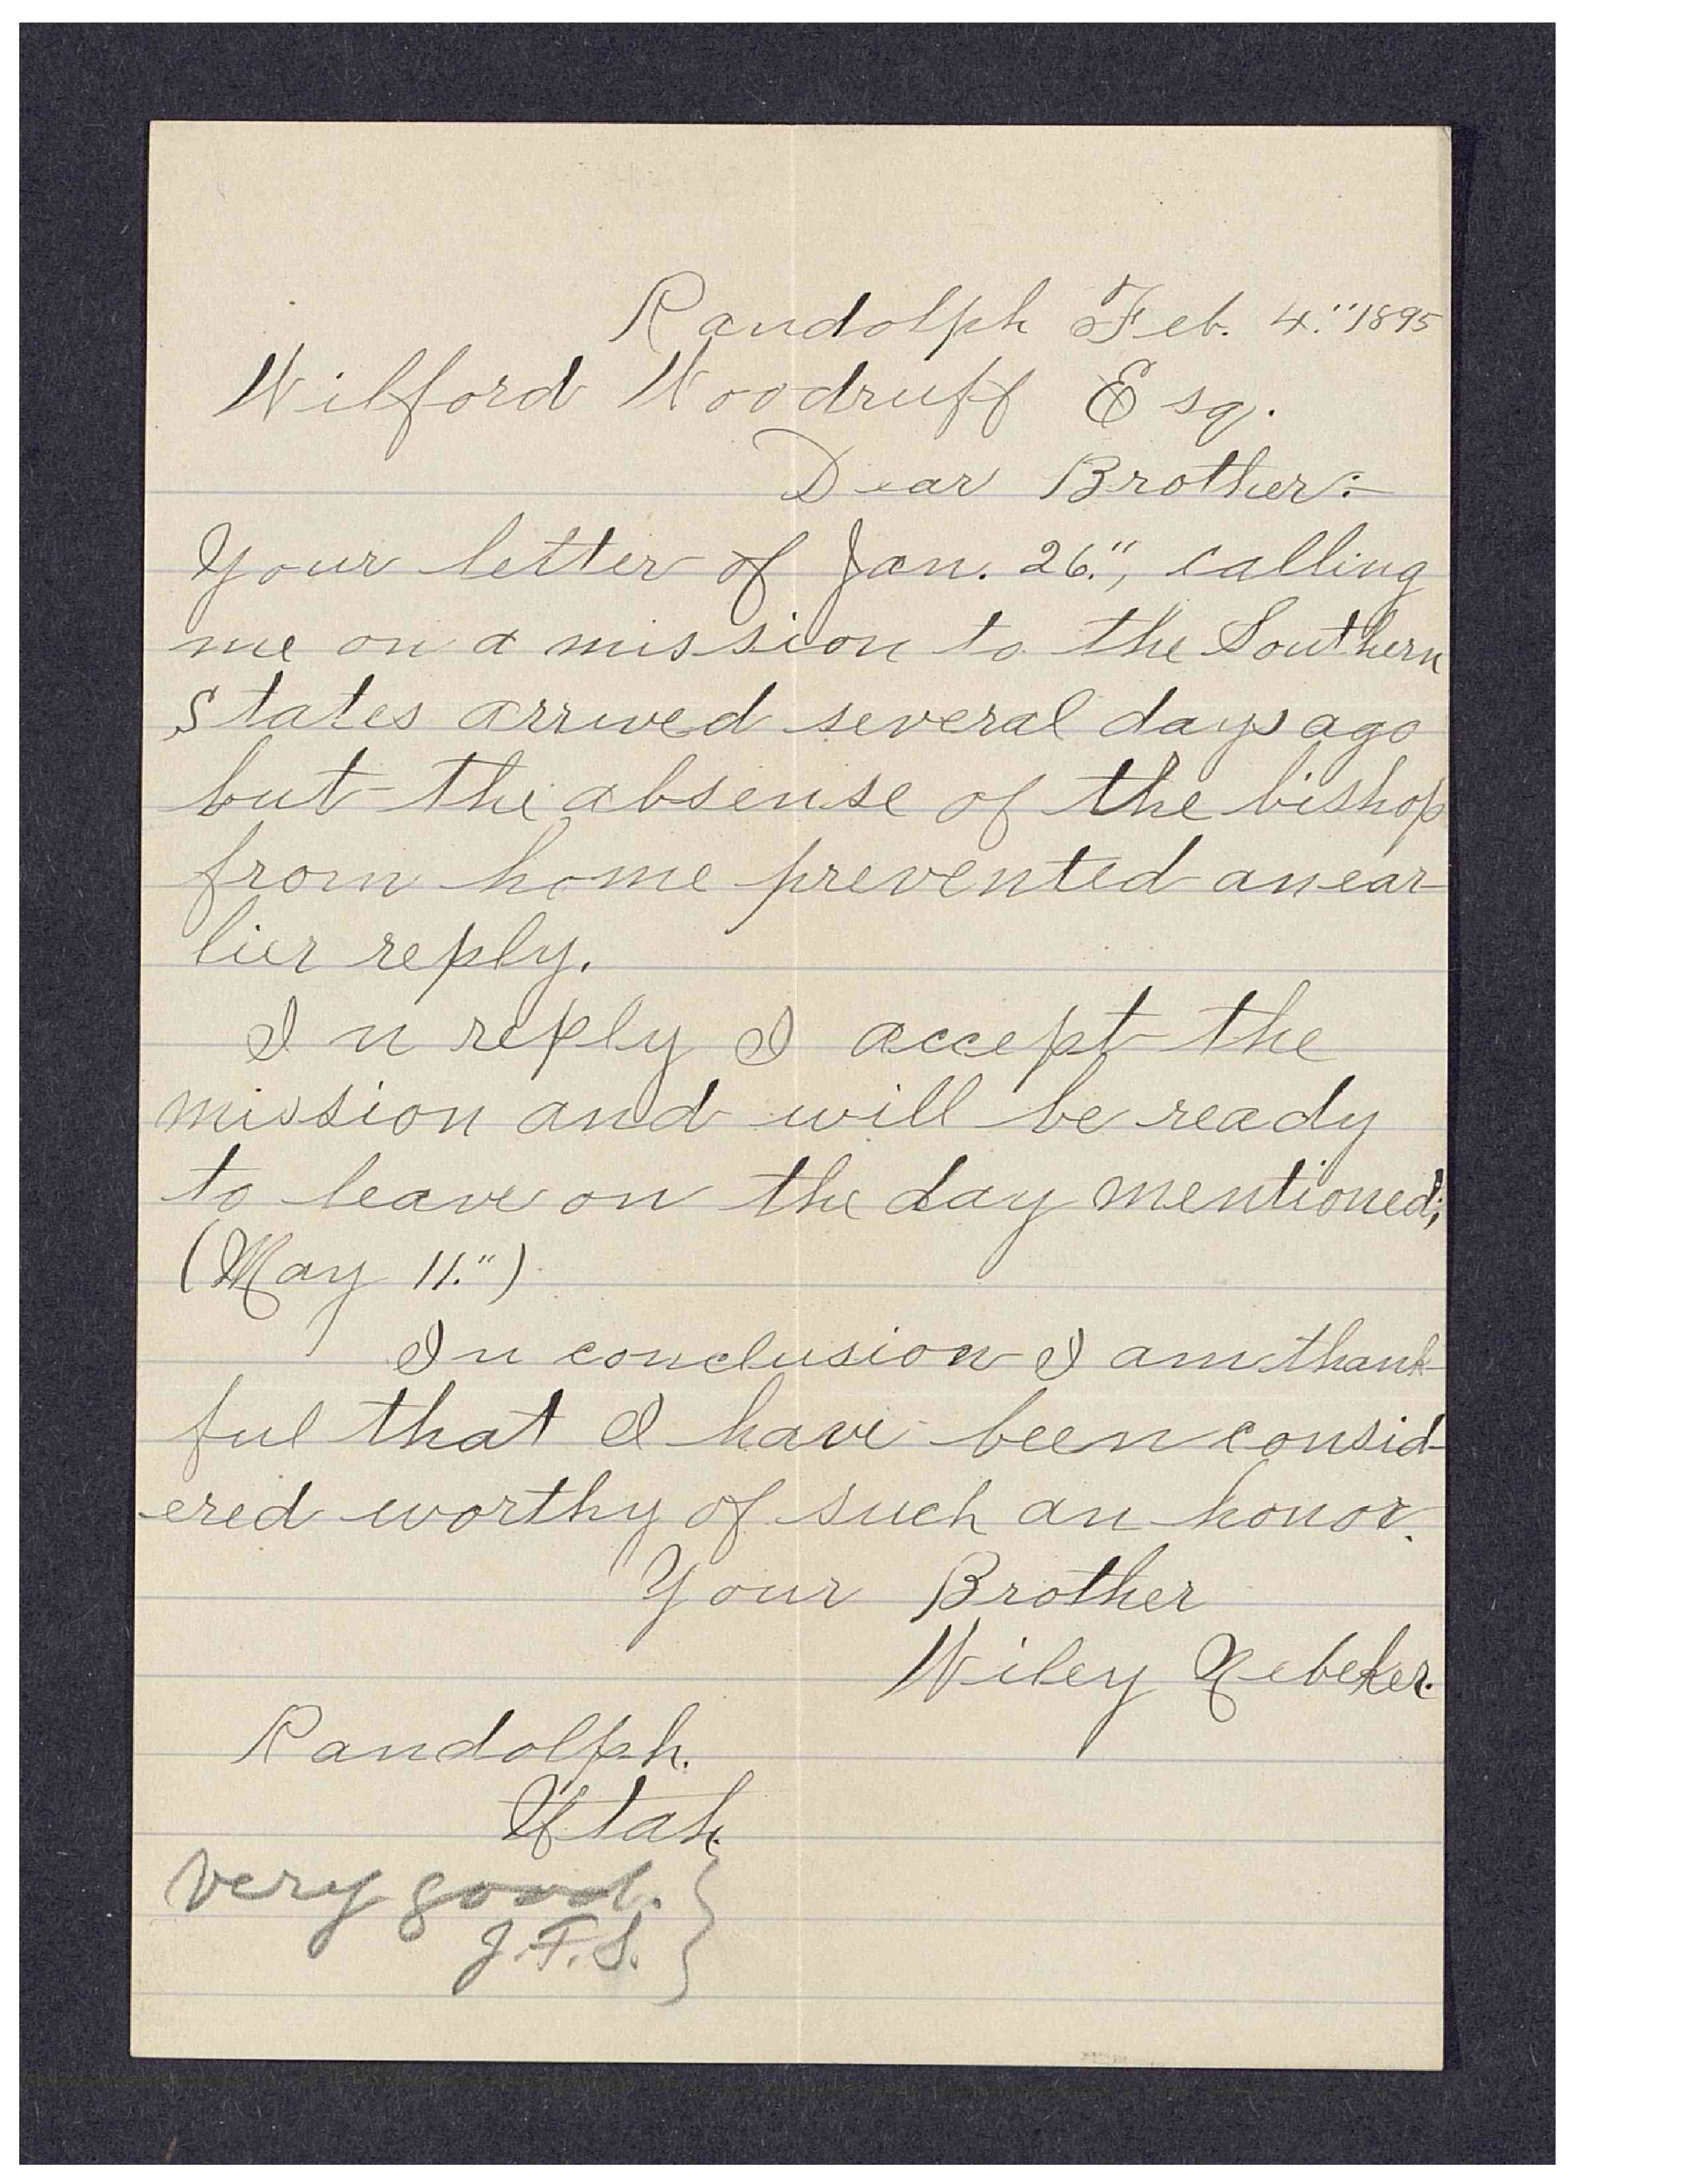 Randolph Feb. 4." 1895
Wilford Woodruff Esq.
Dear Brother:-
Your letter of Jan. 26.", calling
me on a mission to the Southern
States arrived several days ago
but the absense of the bishop
from home prevented an ear-
lier reply.
In reply I accept the
mission and will be ready
to leave on the day mentioned;
(May 11.")
In conclusion I am thank-
ful that I have been consid-
ered worthy of such an honor.
Your Brother
Wiley Nebeker.
Randolph.
Utah.
very good. }
J.F.S. }